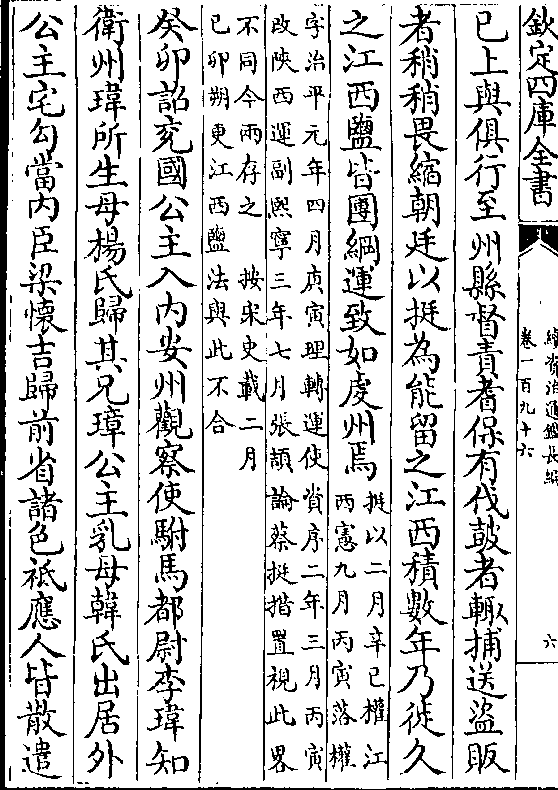 欽定四庫全書
續資治通鑑長編
卷一百九十六
六
已上與俱行至州縣督責耆保有伐鼓者輒捕送盜販
者稍稍畏縮朝廷以挺為能留之江西積數年乃徙久
之江西鹽皆團綱運致如處州焉
挺以二月辛已權江
西憲九月丙寅落權
字治平元年四月庚寅理轉運使資序二年三月丙寅
改陜西運副熙寧三年七月張頡論蔡挺措置視此畧
不同今兩存之 按宋史載二月
已卯朔更江西鹽法與此不合
癸卯詔兗國公主入内安州觀察使駙馬都尉李瑋知
衛州瑋所生母楊氏歸其兄璋公主乳母韓氏出居外
公主宅勾當内臣梁懐吉歸前省諸色祗應人皆散遣